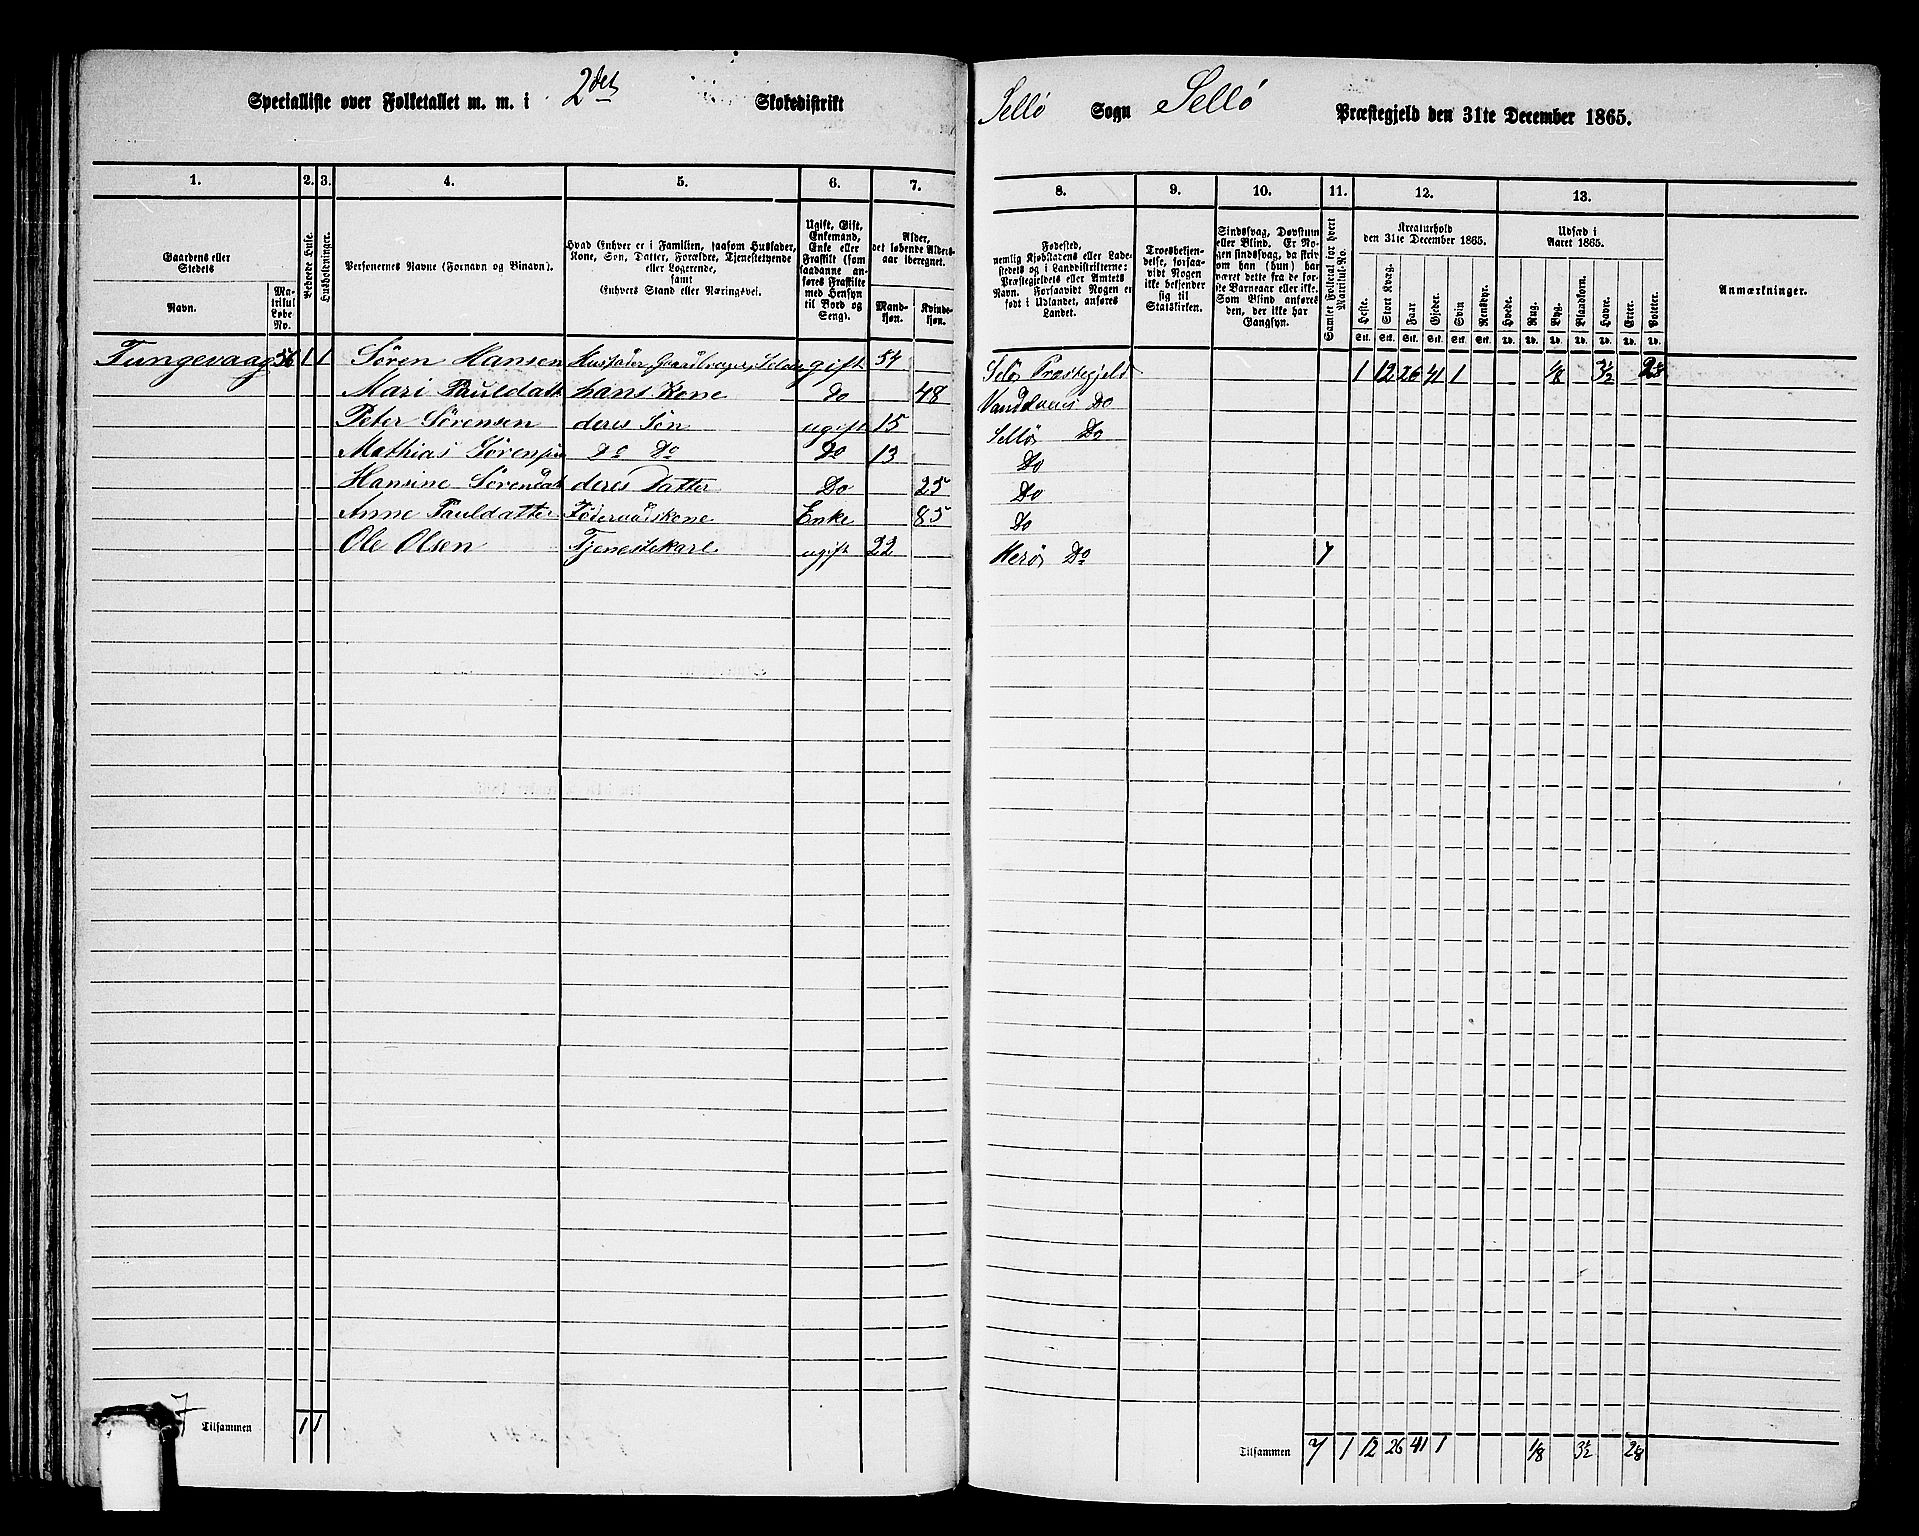 Specialliste over Folketallet m. m. i 2det Skoledistrikt
Sellö Sogn Sellö Præstegjeld den 31te December 1865.
1. 2. 3. 4. 5. 6. 7.
8. 9. 10. 11. 12. 13.
Gaardens eller Stedets
Navn.
Matrikul Løbe No.
Beboede Huse.
Husholdninger.
Personernes Navne (Fornavn og Binavn).
Hvad Enhver er i Familien, saasom Husfader,
Kone, Søn, Datter, Forældre, Tjenestetyende
eller Logerende,
samt
Enhvers Stand eller Næringsvei.
Ugift, Gift,
Enkemand,
Enke eller
Fraskilt (som
saadanne an-
føres Fraskilte
med Hensyn
til Bord og
Seng).
Alder,
det løbende Alders-
aar iberegnet.
Mand-
kjøn.
Kvinde-
kjøn.
Fødested,
nemlig Kjøbstadens eller Lade-
stedets og i Landdistrikterne:
Præstegjeldets eller Amtets
Navn. Forsaavidt Nogen er
født i Udlandet, anføres
Landet.
Troesbekjen-
delse, forsaa-
vidt Nogen
ikke bekjender
sig til
Statskirken.
Sindssvag, Døvstum
eller Blind. Er No-
gen sindssvag, da skriv
om han (hun) har
været dette fra de før-
ste Barneaar eller ikke.
Som Blind anføres
den, der ikke har
Gangsyn.
Samlet Folketal for hvert
Matrikul-No.
Kreaturhold
den 31te December 1865.
Heste. Stort Kvæg. Faar. Gjeder. Svin. Rensdyr.
Stk. Stk. Stk. Stk. Stk. Stk.
Udsæd i
Aaret 1865.
Hvede. Rug. Byg. Blandkorn. Havre. Erter. Poteter.
Td. Td. Td. Td. Td. Td. Td.
Anmærkninger.
Tungevaag 56 1 1 Søren Hansen Husfader, gift 54 Selö Præstegjeld 1 12 26 41 1 1/8 3 1/2 28
Mari Pauldatt hans Kone Do 48 Do
Peter Sørensen deres Søn ugift 15 Sellö Do
Mathias Sørensen Do Do Do 13 Do
Hansine Sørensdat deres Datter Do 25 Do
Anne Pauldatter Føderaadskone Enke 85 Do
Ole Olsen Tjenestekarl ugift 22 Herö Do 7
7 Tilsammen 1 1
Tilsammen 7 1 12 26 41 1 1/8 3 1/2 28